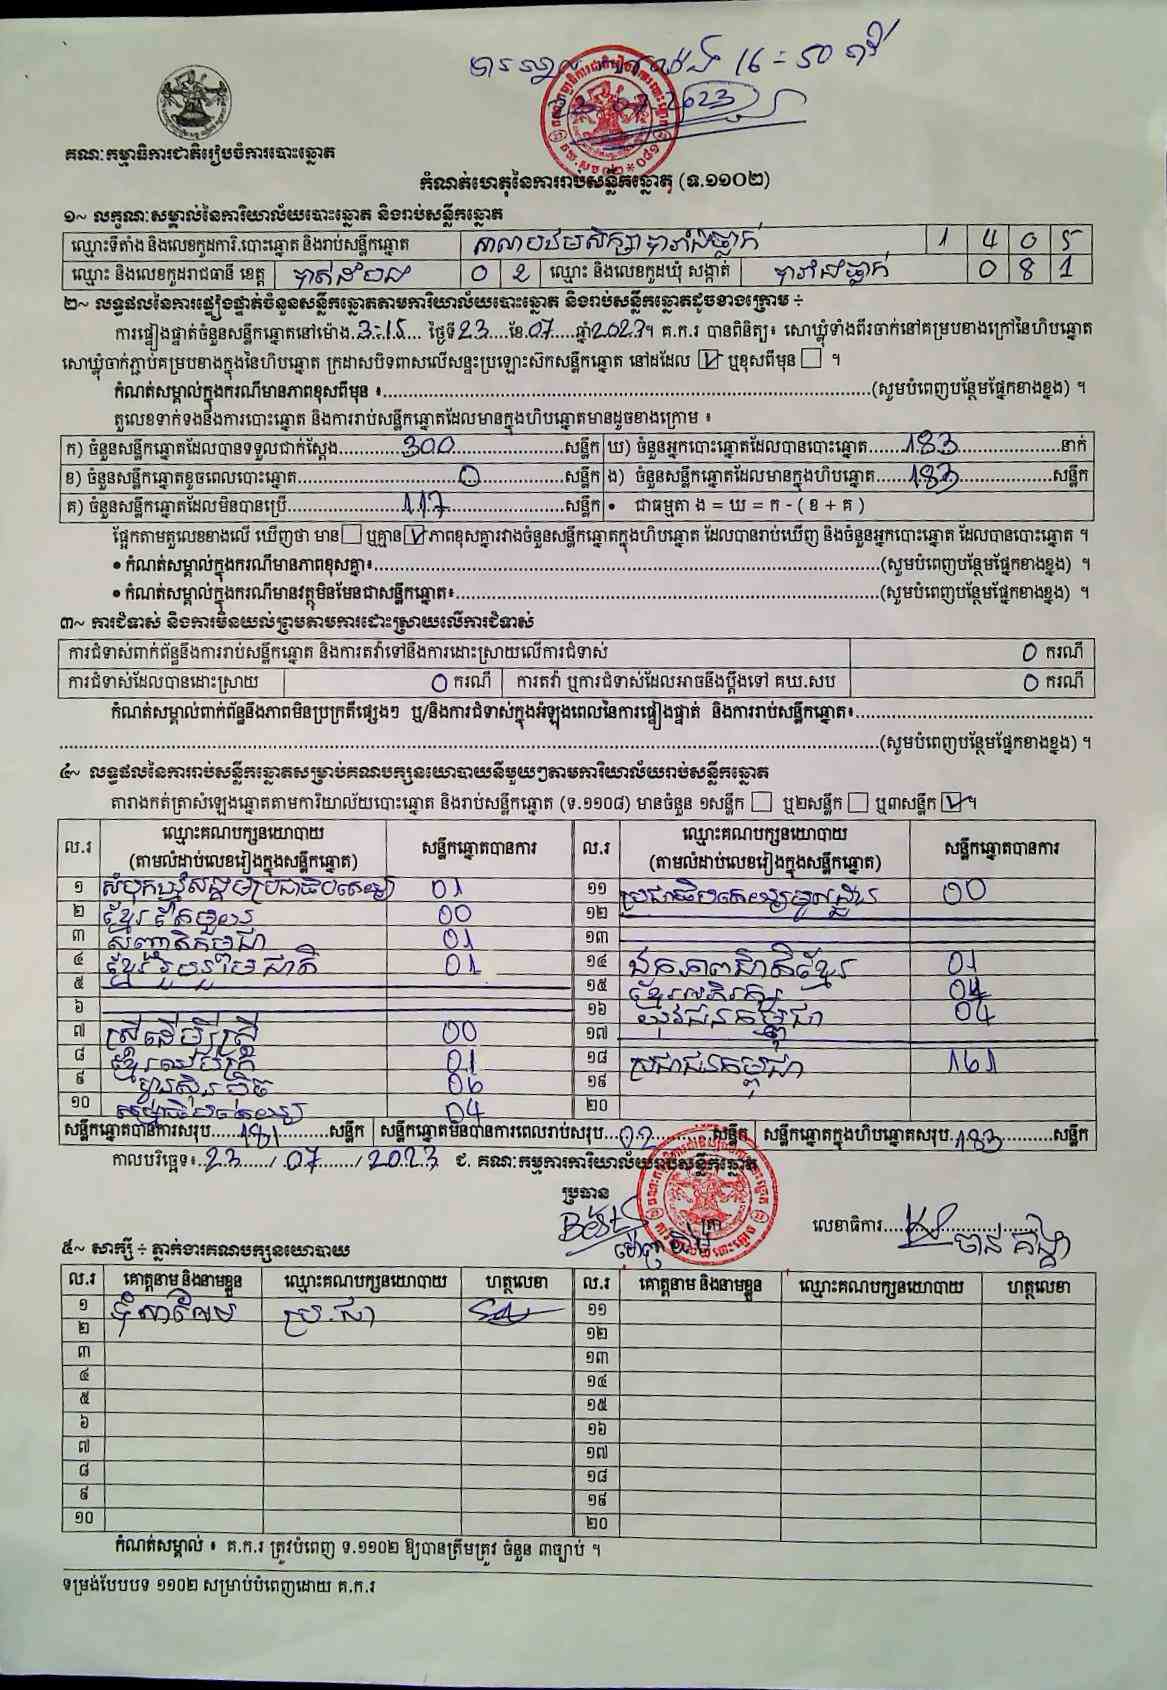 16 = 50
23.07.2023
គណៈកម្មាធិការជាតិរៀបចំការបោះឆ្នោត
កំណត់ហេតុនៃការរាប់សន្លឹកឆ្នោត (ទ.១១០២)
១~ លក្ខណៈសម្គាល់នៃការិយាល័យបោះឆ្នោត និងរាប់សន្លឹកឆ្នោត
ឈ្មោះទីតាំង និងលេខកូដការិ.បោះឆ្នោត និងរាប់សន្លឹកឆ្នោត សាលាបឋមសិក្សា បារាំងធ្លាក់ 1 4 0 5
ឈ្មោះ និងលេខកូដរាជធានី ខេត្ត បាត់ដំបង 0 2 ឈ្មោះ និងលេខកូដឃុំ សង្កាត់ បារាំងធ្លាក់ 0 8 1
២~ លទ្ធផលនៃការផ្ទៀងផ្ទាត់ចំនួនសន្លឹកឆ្នោតតាមការិយាល័យបោះឆ្នោត និងរាប់សន្លឹកឆ្នោតដូចខាងក្រោម ÷
ការផ្ទៀងផ្ទាត់ចំនួនសន្លឹកឆ្នោតនៅម៉ោង 3:15 ថ្ងៃទី 23 ខែ 07 ឆ្នាំ 2023។ គ.ក.រ បានពិនិត្យ៖ សោឃ្លុំទាំងពីរចាក់នៅគម្របខាងក្រៅនៃហិបឆ្នោត
សោឃ្លុំចាក់ភ្ជាប់គម្របខាងក្នុងនៃហិបឆ្នោត ក្រដាសបិទពាសលើសន្ទះប្រឡោះស៊កសន្លឹកឆ្នោត នៅដដែល ☑ ឬខុសពីមុន ☐ ។
កំណត់សម្គាល់ក្នុងករណីមានភាពខុសពីមុន ៖ (សូមបំពេញបន្ថែមផ្នែកខាងខ្នង) ។
តួលេខទាក់ទងនឹងការបោះឆ្នោត និងការរាប់សន្លឹកឆ្នោតដែលមានក្នុងហិបឆ្នោតមានដូចខាងក្រោម ៖
ក) ចំនួនសន្លឹកឆ្នោតដែលបានទទួលជាក់ស្តែង 300 សន្លឹក ឃ) ចំនួនអ្នកបោះឆ្នោតដែលបានបោះឆ្នោត 183 នាក់
ខ) ចំនួនសន្លឹកឆ្នោតខូចពេលបោះឆ្នោត 0 សន្លឹក ង) ចំនួនសន្លឹកឆ្នោតដែលមានក្នុងហិបឆ្នោត 183 សន្លឹក
គ) ចំនួនសន្លឹកឆ្នោតដែលមិនបានប្រើ 117 សន្លឹក • ជាធម្មតា ង = ឃ = ក - ( ខ + គ )
ផ្អែកតាមតួលេខខាងលើ ឃើញថា មាន ☐ ឬគ្មាន ☑ ភាពខុសគ្នារវាងចំនួនសន្លឹកឆ្នោតក្នុងហិបឆ្នោត ដែលបានរាប់ឃើញ និងចំនួនអ្នកបោះឆ្នោត ដែលបានបោះឆ្នោត ។
• កំណត់សម្គាល់ក្នុងករណីមានភាពខុសគ្នា៖ (សូមបំពេញបន្ថែមផ្នែកខាងខ្នង) ។
• កំណត់សម្គាល់ក្នុងករណីមានវត្ថុមិនមែនជាសន្លឹកឆ្នោត៖ (សូមបំពេញបន្ថែមផ្នែកខាងខ្នង) ។
៣~ ការជំទាស់ និងការមិនយល់ព្រមតាមការដោះស្រាយលើការជំទាស់
ការជំទាស់ពាក់ព័ន្ធនឹងការរាប់សន្លឹកឆ្នោត និងការតវ៉ាទៅនឹងការដោះស្រាយលើការជំទាស់ 0 ករណី
ការជំទាស់ដែលបានដោះស្រាយ 0 ករណី ការតវ៉ា ឬការជំទាស់ដែលអាចនឹងប្តឹងទៅ គឃ.សប 0 ករណី
កំណត់សម្គាល់ពាក់ព័ន្ធនឹងភាពមិនប្រក្រតីផ្សេងៗ ឬ/និងការជំទាស់ក្នុងអំឡុងពេលនៃការផ្ទៀងផ្ទាត់ និងការរាប់សន្លឹកឆ្នោត៖
(សូមបំពេញបន្ថែមផ្នែកខាងខ្នង) ។
៤~ លទ្ធផលនៃការរាប់សន្លឹកឆ្នោតសម្រាប់គណបក្សនយោបាយនីមួយៗតាមការិយាល័យរាប់សន្លឹកឆ្នោត
តារាងកត់ត្រាសំឡេងឆ្នោតតាមការិយាល័យបោះឆ្នោត និងរាប់សន្លឹកឆ្នោត (ទ.១១០៨) មានចំនួន ១សន្លឹក ☐ ឬ២សន្លឹក ☐ ឬ៣សន្លឹក ☑ ។
ល.រ ឈ្មោះគណបក្សនយោបាយ (តាមលំដាប់លេខរៀងក្នុងសន្លឹកឆ្នោត) សន្លឹកឆ្នោតបានការ ល.រ ឈ្មោះគណបក្សនយោបាយ (តាមលំដាប់លេខរៀងក្នុងសន្លឹកឆ្នោត) សន្លឹកឆ្នោតបានការ
១ សំបុកឃ្មុំសង្គមប្រជាធិបតេយ្យ 01 ១១ ប្រជាធិបតេយ្យមូលដ្ឋាន 00
២ ខ្មែរ 00 ១២
៣ សញ្ជាតិកម្ពុជា 01 ១៣
៤ ខ្មែររួបរួមជាតិ 01 ១៤ ឯកភាពជាតិខ្មែរ 01
៥ ១៥ ខ្មែរអភិរក្ស 04
៦ ១៦ យុវជនកម្ពុជា 04
៧ ស្រីដើម្បីស្រី 00 ១៧
៨ ខ្មែរឈប់ក្រ 01 ១៨ ប្រជាជនកម្ពុជា 161
៩ ហ្វ៊ុនស៊ិនប៉ិច 06 ១៩
១០ 04 ២០
សន្លឹកឆ្នោតបានការសរុប 181 សន្លឹក សន្លឹកឆ្នោតមិនបានការពេលរាប់សរុប 02 សន្លឹក សន្លឹកឆ្នោតក្នុងហិបឆ្នោតសរុប 183 សន្លឹក
កាលបរិច្ឆេទ៖ 23 / 07 / 2023 ជ. គណៈកម្មការការិយាល័យរាប់សន្លឹកឆ្នោត
ប្រធាន ត្រា លេខាធិការ
៥~ សាក្សី ÷ ភ្នាក់ងារគណបក្សនយោបាយ
ល.រ គោត្តនាម និងនាមខ្លួន ឈ្មោះគណបក្សនយោបាយ ហត្ថលេខា ល.រ គោត្តនាម និងនាមខ្លួន ឈ្មោះគណបក្សនយោបាយ ហត្ថលេខា
១ ប្រ.ជា ១១
២ ១២
៣ ១៣
៤ ១៤
៥ ១៥
៦ ១៦
៧ ១៧
៨ ១៨
៩ ១៩
១០ ២០
កំណត់សម្គាល់ ៖ គ.ក.រ ត្រូវបំពេញ ទ.១១០២ ឱ្យបានត្រឹមត្រូវ ចំនួន ៣ច្បាប់ ។
ទម្រង់បែបបទ ១១០២ សម្រាប់បំពេញដោយ គ.ក.រ